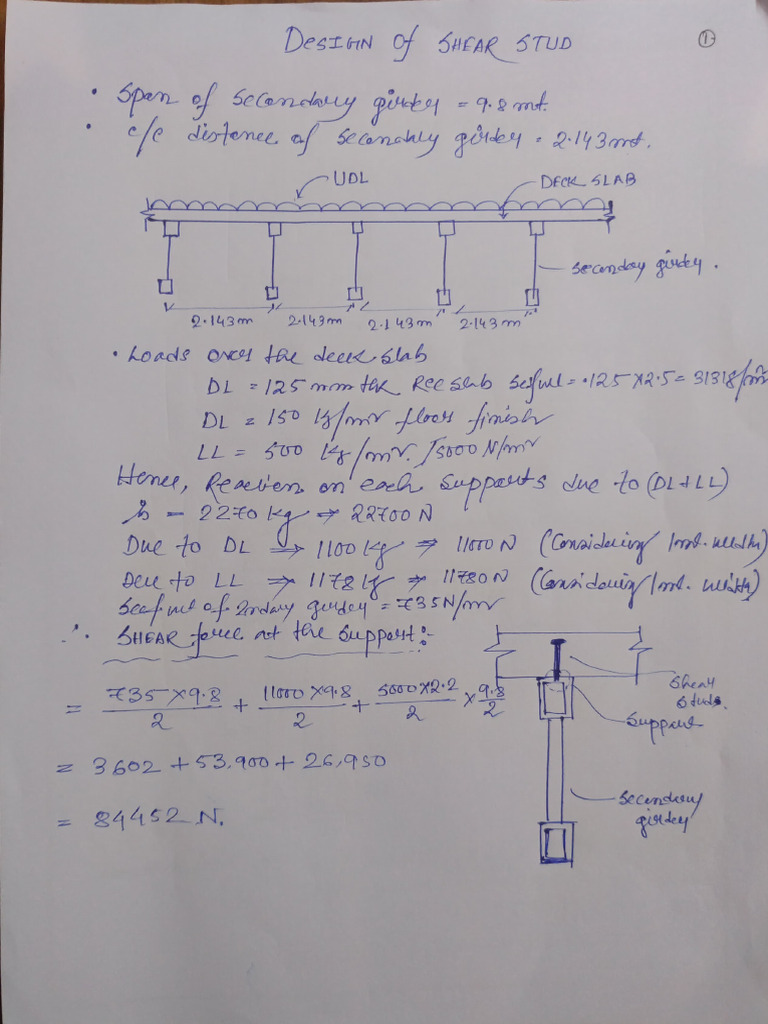 DESIGN of SHEAR STUD
1
• Span of Secondary girder = 9.8 mt.
• c/c distance of secondary girder = 2.143 mt.
UDL
DECK SLAB
Secondary girder.
2.143m 2.143m 2.143m 2.143m
• Loads over the deck slab
DL = 125 mm thk Rcc slab selfwt = .125 X2.5 =
DL = 150 kg/m² floor finish
LL = 500 kg/m². / 5000 N/m²
Hence, Reaction on each supports due to (DL+LL)
is = 2270 kg ⇒ 22700 N
Due to DL ⇒ 1100 kg ⇒ 11000 N (Considering 1mt. width)
Due to LL ⇒ 1178 kg ⇒ 11780 N (Considering 1mt. width)
Self wt of 2ndary girder = 735 N/m
∴ SHEAR force at the Support:-
= 735 X9.8/2 + 11000 X9.8/2 + 5000 X2.2/2 X 9.8/2
Shear
Studs.
Support
= 3602 + 53,900 + 26,950
Secondary
girder
= 84452 N.